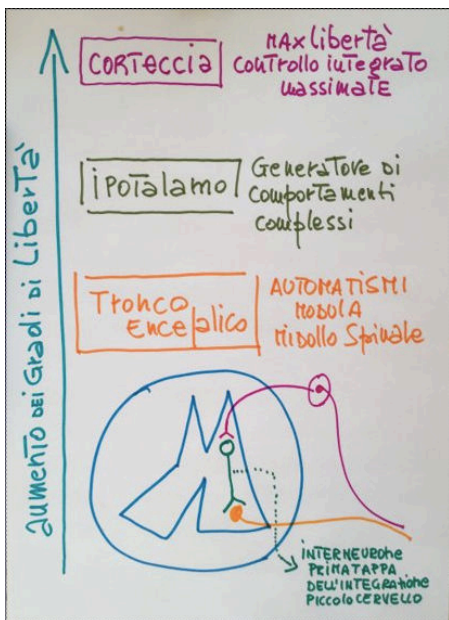 aumento dei Gradi di Libertà
CORTECCIA
MAX libertà
controllo integrato
massimale
iPOTALAMO
Generatore di
comportamenti
complessi
Tronco
Encefalico
AUTOMATISMI
MODULA
MIDOLLO SPINALE
INTERNEURONE
PRIMA TAPPA
DELL'INTEGRATIONE
PICCOLO CERVELLO